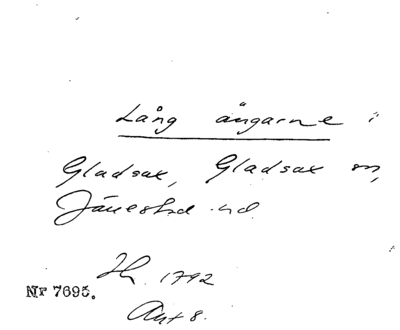 Lång ängarne i
Gladsax, Gladsax sn,
Järrestad hd.
H. 1792
Nr 7695.
Akt 8.